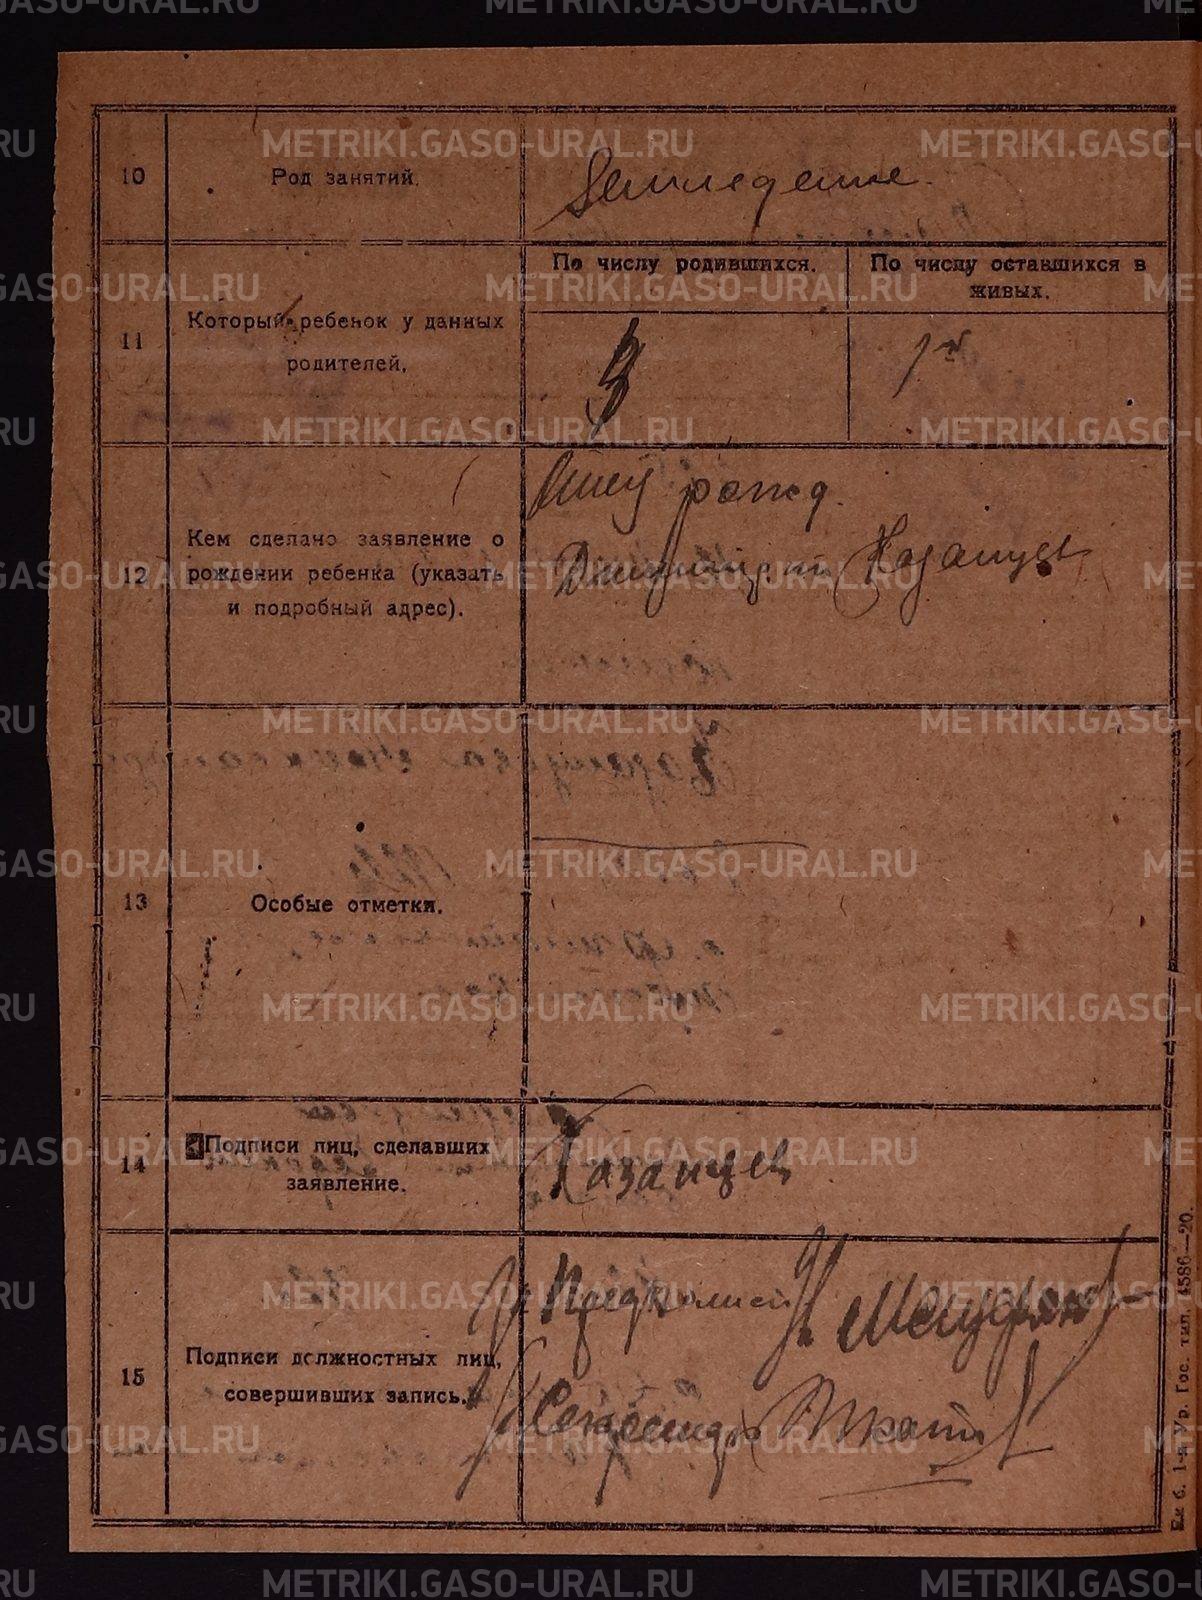 10
Род занятий.
Земледелие.
11
Который ребенок у данных
родителей.
По числу родившихся.
По числу оставшихся в
живых.
3
1й
12
Кем сделано заявление о
рождении ребенка (указать
и подробный адрес).
Отец рожд.
Казанцев
13
Особые отметки.
14
Подписи лиц, сделавших
заявление.
Казанцев
15
Подписи должностных лиц,
совершивших запись.
Секретарь
Ек б. 1-я Ур. Гос. тип. 4586—20.
METRIKI.GASO-URAL.RU